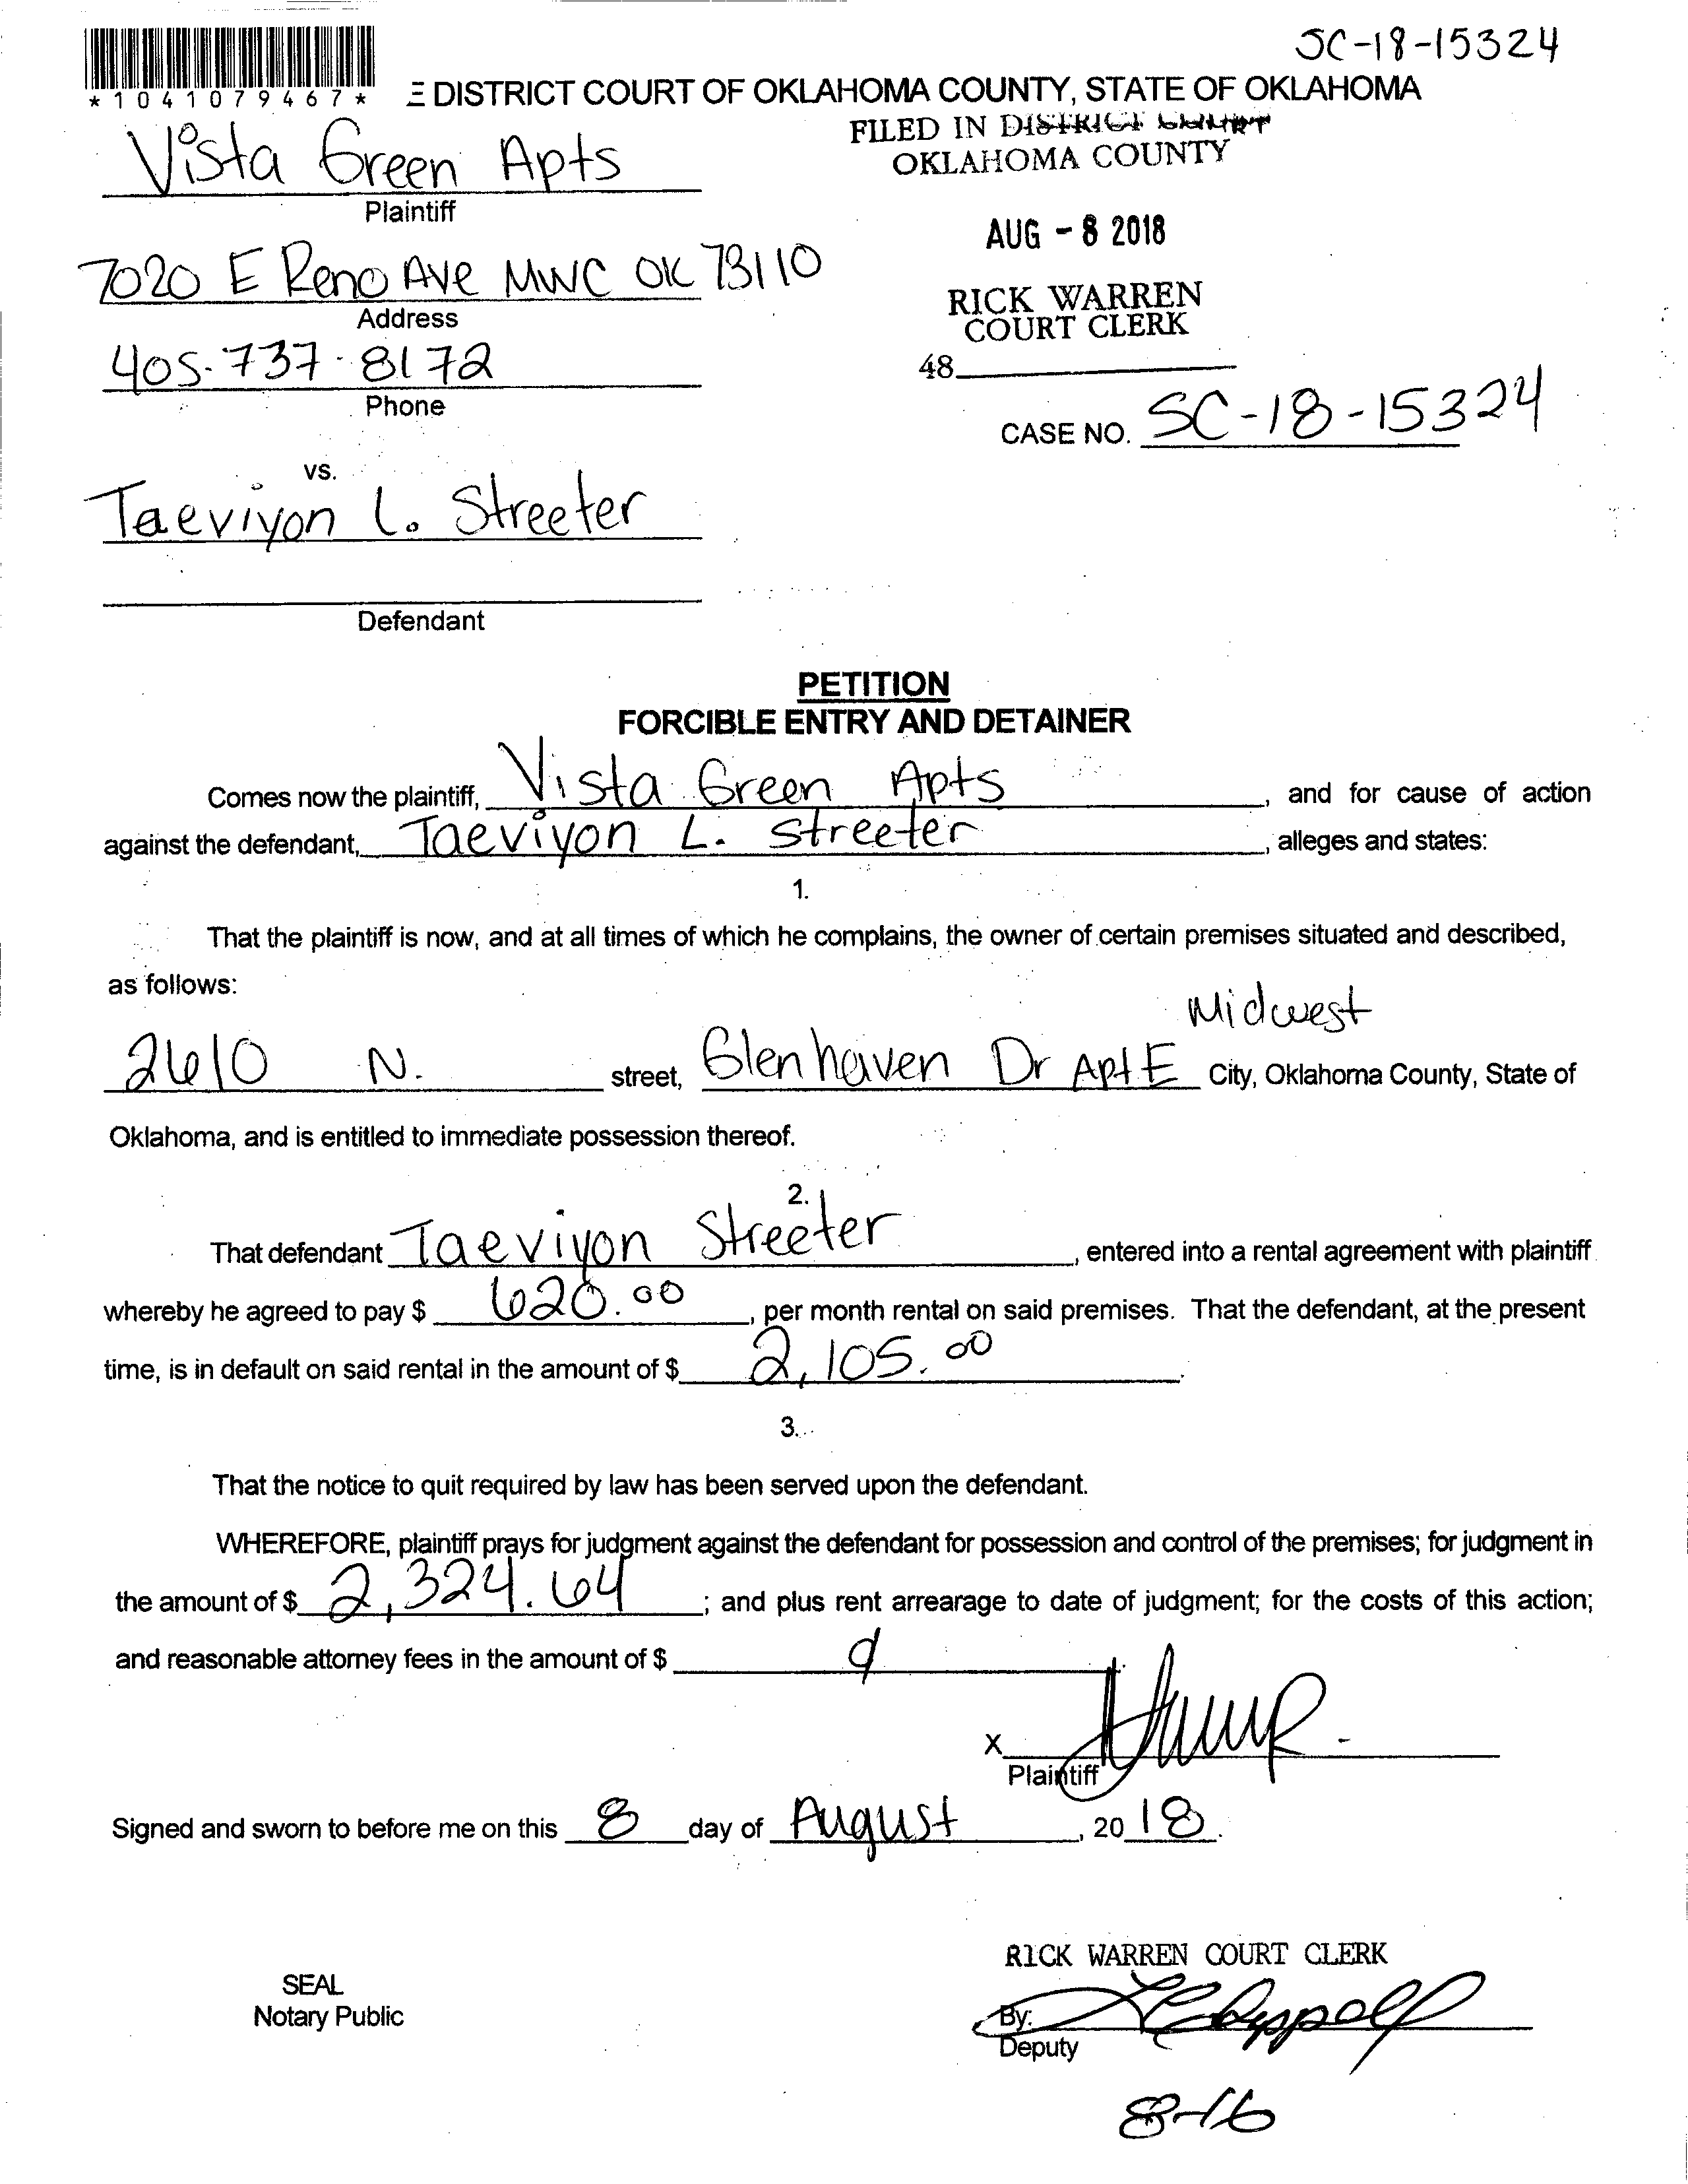 SC-18-15324
*1041079467*
E DISTRICT COURT OF OKLAHOMA COUNTY, STATE OF OKLAHOMA
FILED IN DISTRICT COURT
OKLAHOMA COUNTY
Vista Green Apts
Plaintiff
AUG - 8 2018
7020 E Reno Ave MWC OK 73110
Address
RICK WARREN
COURT CLERK
405-737-8172
Phone
48
CASE NO. SC-18-15324
vs.
Taeviyon L. Streeter
Defendant
PETITION
FORCIBLE ENTRY AND DETAINER
Comes now the plaintiff, Vista Green Apts, and for cause of action
against the defendant, Taeviyon L. Streeter, alleges and states:
1.
That the plaintiff is now, and at all times of which he complains, the owner of certain premises situated and described,
as follows:
Midwest
2610 N. street, Glenhaven Dr Apt E City, Oklahoma County, State of
Oklahoma, and is entitled to immediate possession thereof.
2.
That defendant Taeviyon Streeter, entered into a rental agreement with plaintiff
whereby he agreed to pay $ 620.00, per month rental on said premises. That the defendant, at the present
time, is in default on said rental in the amount of $ 2,105.00.
3.
That the notice to quit required by law has been served upon the defendant.
WHEREFORE, plaintiff prays for judgment against the defendant for possession and control of the premises; for judgment in
the amount of $ 2,324.64; and plus rent arrearage to date of judgment; for the costs of this action;
and reasonable attorney fees in the amount of $
X
Plaintiff
Signed and sworn to before me on this 8 day of August, 2018.
RICK WARREN COURT CLERK
SEAL
Notary Public
By:
Deputy
8-16